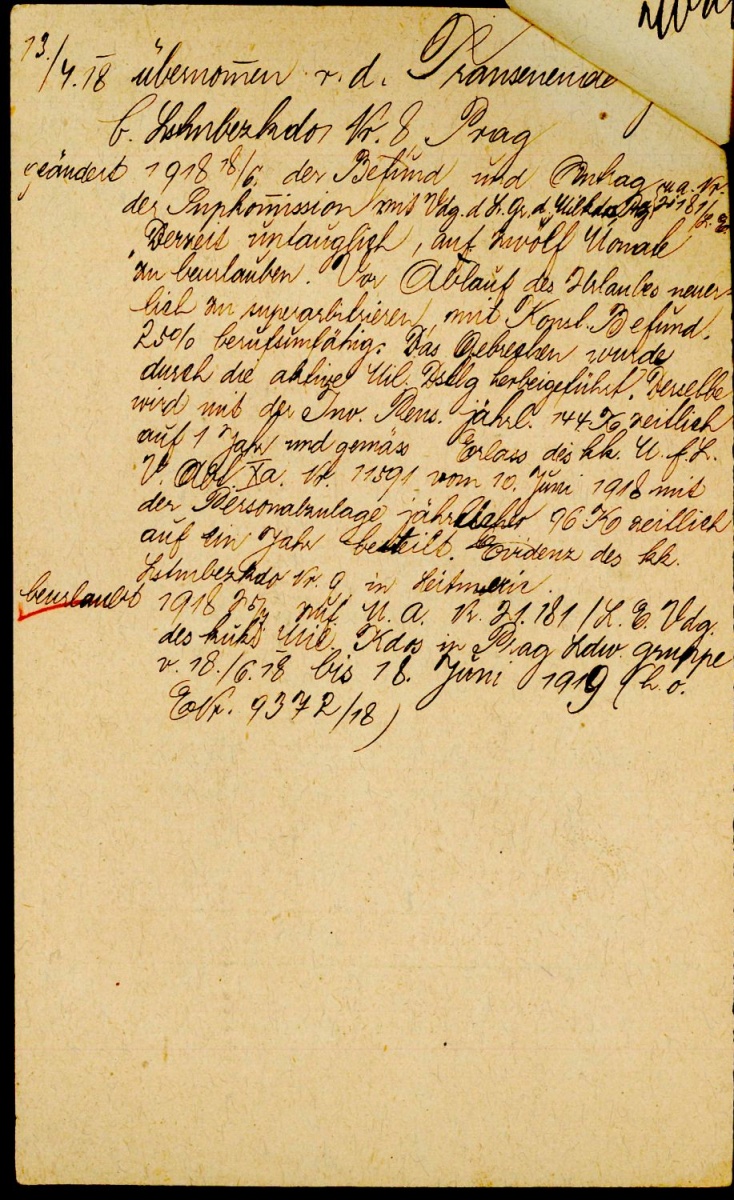 13./4.18 übernommen v. d. Transenende
b. Lstmbezkdo Nr. 8, Prag
geändert 1918 18/6. der Befund und Antrag
der Suprkom̄ission mit Vdg. d. L. Gr. d. Milkdo Prg M.A. Nr. 21181/L.E.
"Derzeit untauglich, auf zwölf Monate
zu beurlauben. Vor Ablauf des Urlaubes neuer-
lich zu superarbitrieren, mit Konst. Befund.
25% berufsunfähig. Das Gebrechen wurde
durch die aktive Mil. Dstlg herbeigeführt. Derselbe
wird mit der Inv. Pens. jährl. 144 K zeitlich
auf 1 Jahr und gemäss Erlass des kk. M. f. L.
V. Abt. Xa. Nr. 11591 vom 10. Juni 1918 mit
der Personalzulage jährlicher 96 K zeitlich
auf ein Jahr beteilt. Evidenz des kk.
Lstmbezkdo Nr. 9 in Leitmeritz.
beurlaubt 1918 auf M. A. N. 21.181/L. E. Vdg.
des kuks Mil. Kdos in Prag Ldw. gruppe
v. 18./6.18 bis 18. Juni 1919 (h. o.
E Nr. 9372/18)